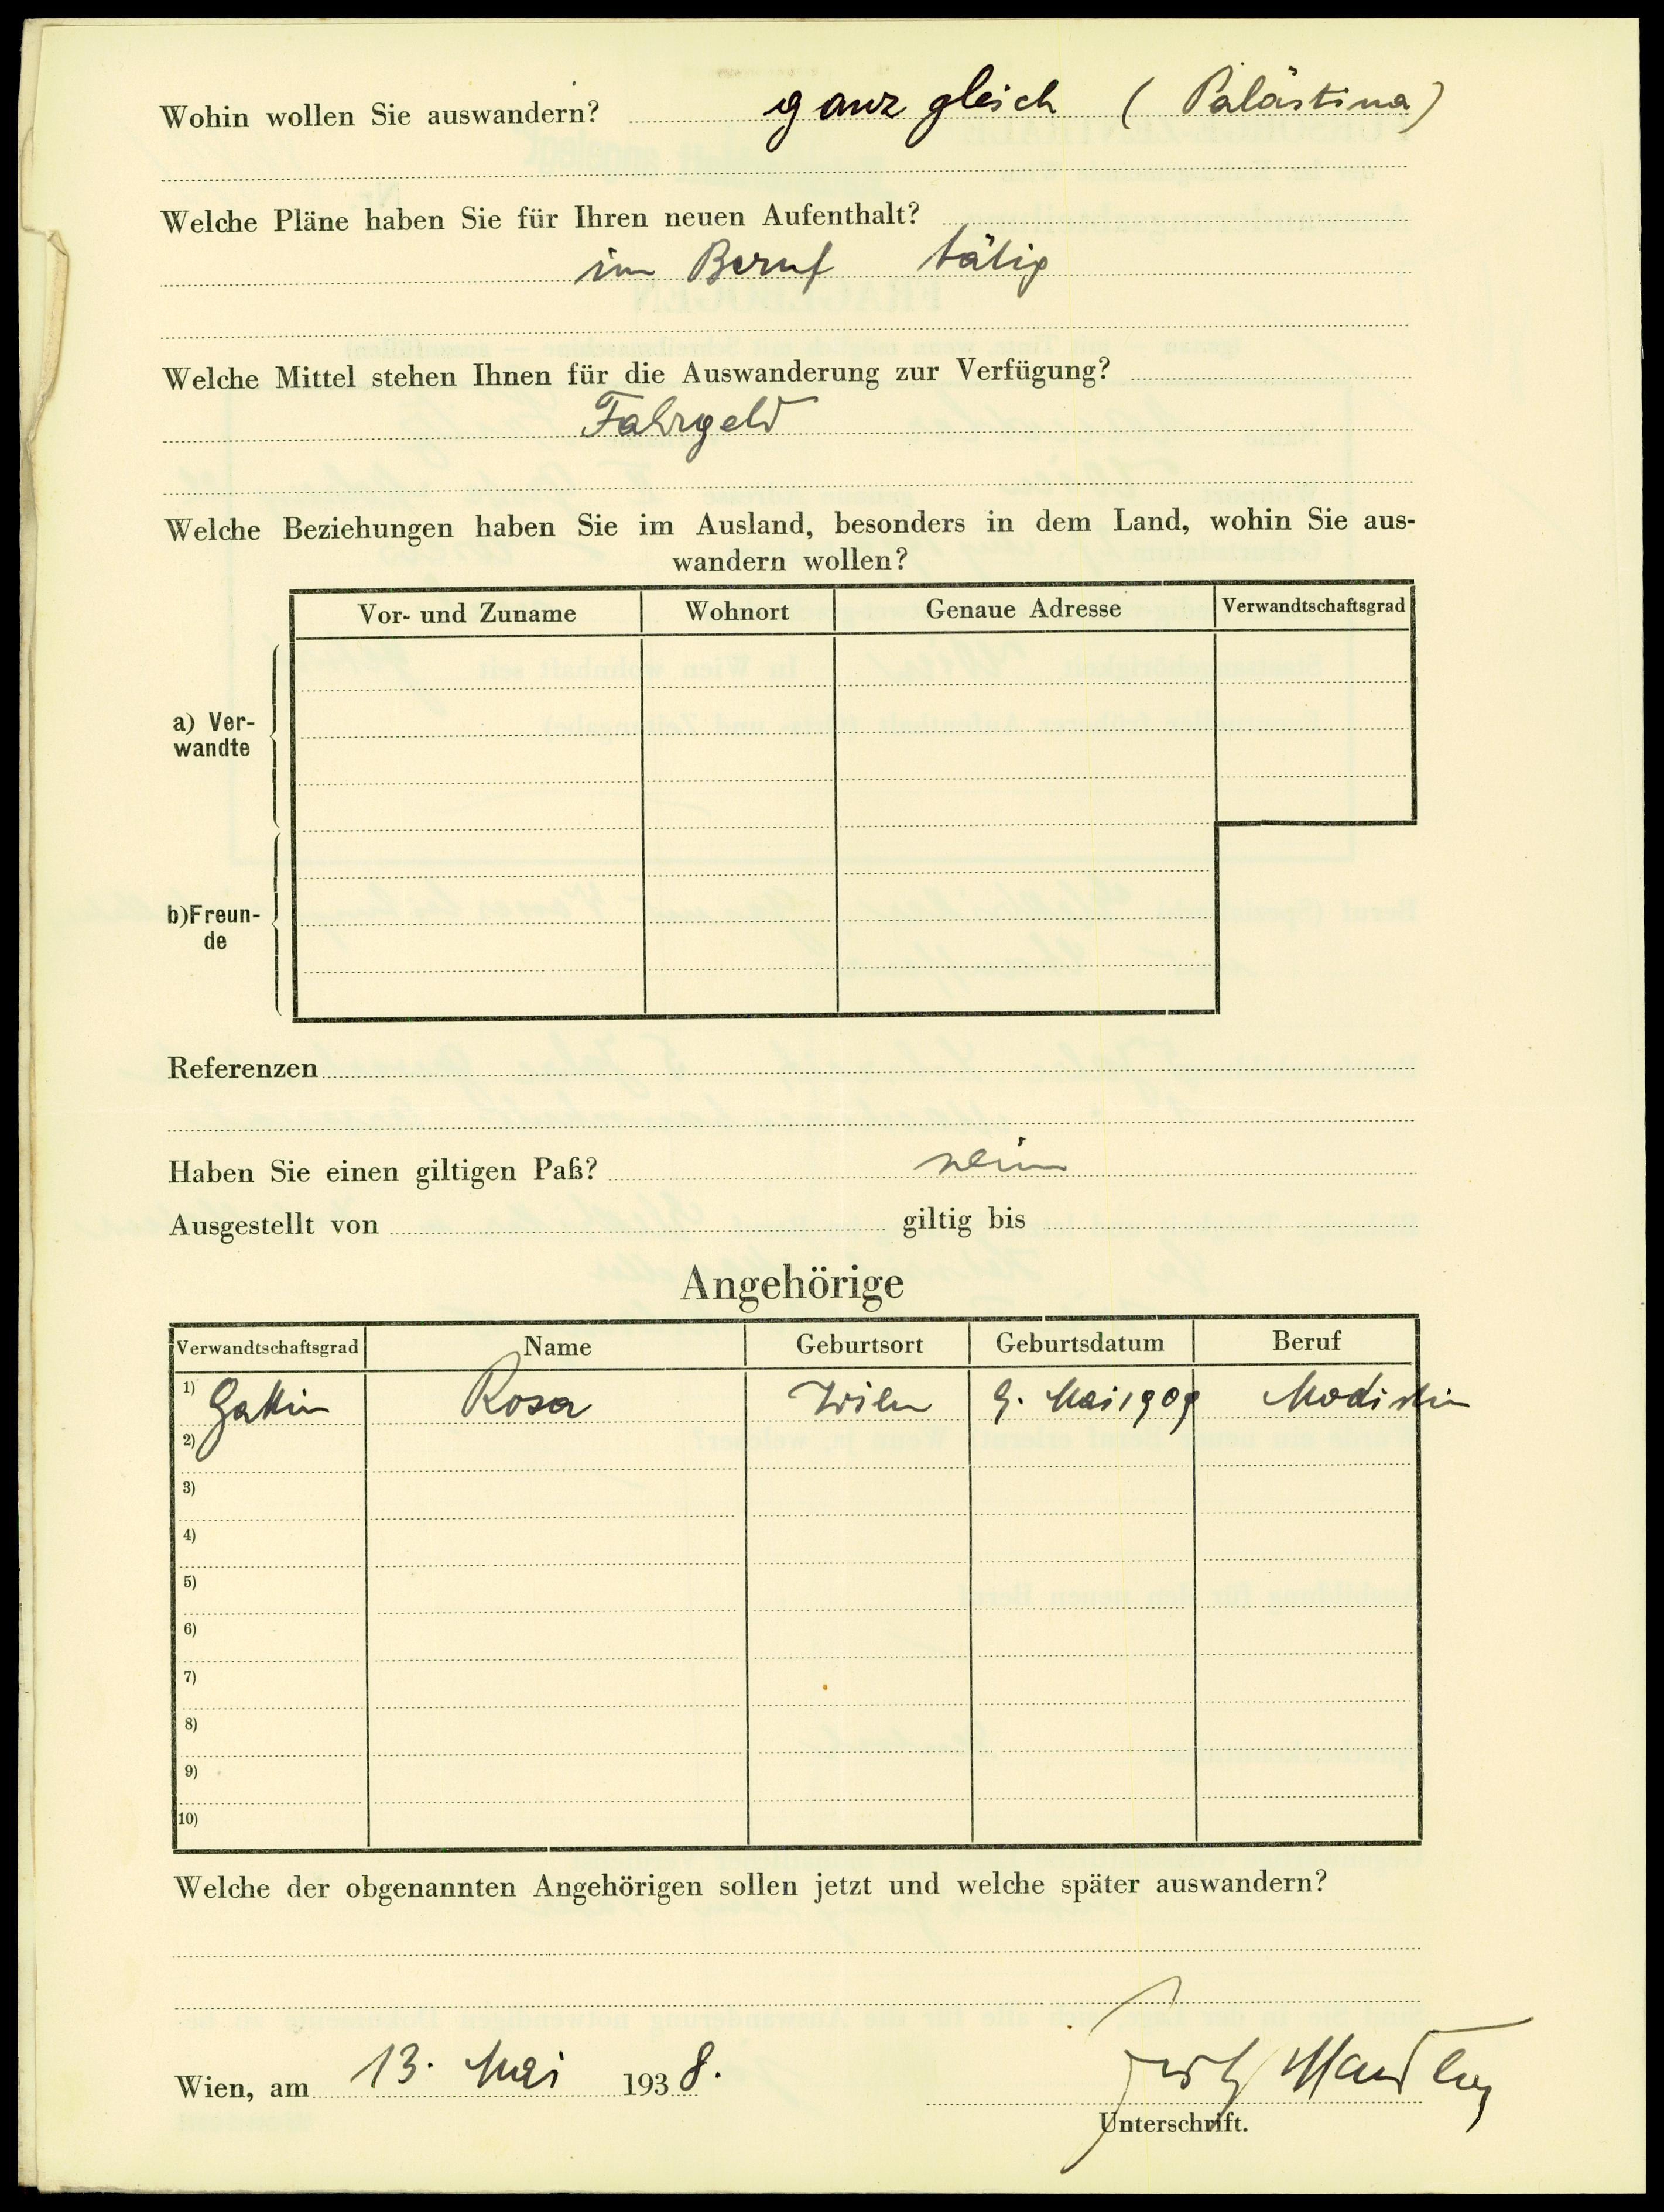 Wohin wollen Sie auswandern? ganz gleich ( Palästina )
Welche Pläne haben Sie für Ihren neuen Aufenthalt?
im Beruf tätig
Welche Mittel stehen Ihnen für die Auswanderung zur Verfügung?
Fahrgeld
Welche Beziehungen haben Sie im Ausland, besonders in dem Land, wohin Sie aus-
wandern wollen?
Vor- und Zuname Wohnort Genaue Adresse Verwandtschaftsgrad
a) Ver-
wandte
b) Freun-
de
Referenzen
Haben Sie einen giltigen Paß? nein
Ausgestellt von giltig bis
Angehörige
Verwandtschaftsgrad Name Geburtsort Geburtsdatum Beruf
1) Gattin Rosa Wien 9. Mai 1909 Modistin
2)
3)
4)
5)
6)
7)
8)
9)
10)
Welche der obgenannten Angehörigen sollen jetzt und welche später auswandern?
Wien, am 13. Mai 1938.
Unterschrift.